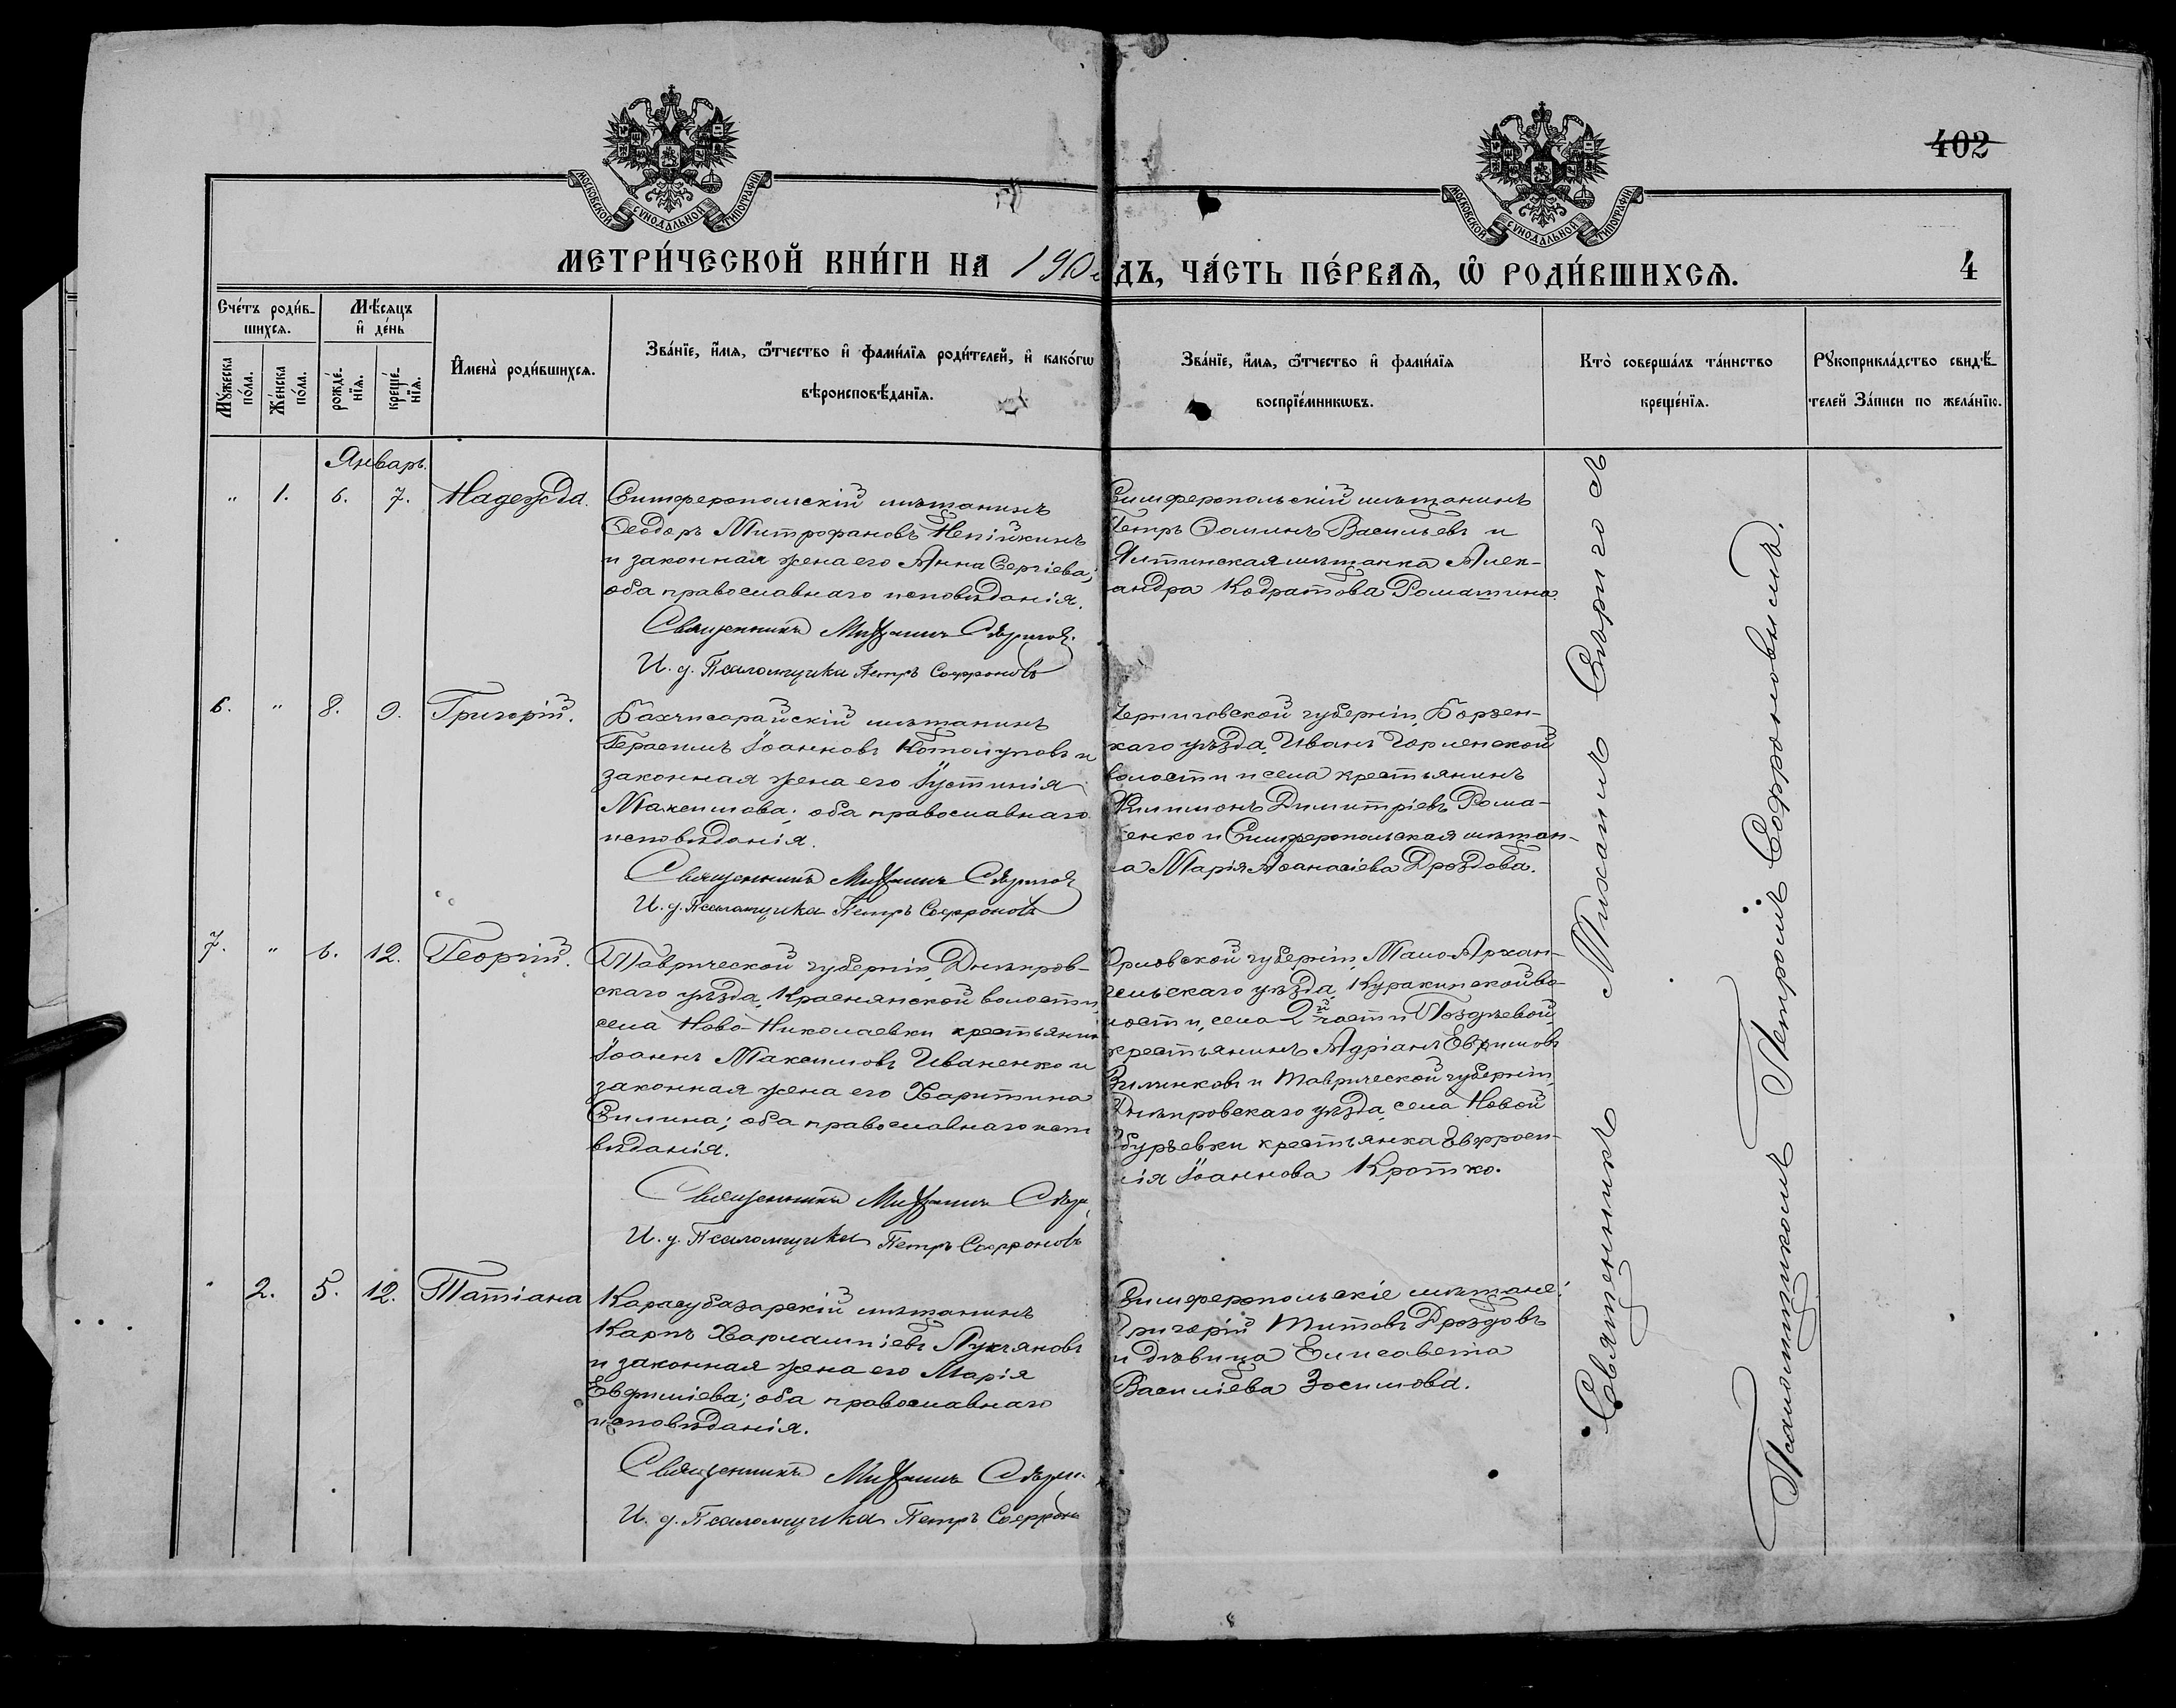 МОСКОВСКОЙ СУНОДАЛЬНОЙ ТИПОГРАФІИ
МОСКОВСКОЙ СУНОДАЛЬНОЙ ТИПОГРАФІИ
402
МЕТРИ́ЧЕСКОЙ КНИ́ГИ НА 190
ДЪ, ЧА́СТЬ ПЕ́РВАЯ, Ѿ РОДИ́ВШИХСЯ.
4
Сче́тъ роди́в-
шихся.
Мꙋжеска по́ла.
Же́нска по́ла.
Мѣ́сяцъ
и҆ де́нь
рожде́-
нїя.
креще́-
нїя.
И҆мена̀ роди́вшихся.
Зва́нїе, и҆́мя, ѻ҆́тчество и҆ фами́лїя роди́телей, и҆ како́гѡ
вѣроисповѣ́данїя.
Зва́нїе, и҆́мя, ѻ҆́тчество и҆ фами́лїя
воспрїе́мникѡвъ.
Кто̀ соверша́лъ та́инство
креще́нїя.
Рꙋкоприкла́дство свидѣ́-
телей За́писи по жела́нїю.
Январь.
" 1. 6. 7. Надежда.
Симферопольскій мѣщанинъ
Ѳеодоръ Митрофановъ
и законная жена его Анна Сергіева;
оба православнаго исповѣданія.
Священникъ Михаилъ Свѣриго
И. д. Псаломщика Петръ Софроновъ
Симферопольскій мѣщанинъ
Петръ Ѳоминъ Васильевъ и
Ялтинская мѣщанка Алек-
андра Кодратова Ромашина.
6. " 8. 9. Григорій.
Бахчисарайскій мѣщанинъ
Герасимъ Іоанновъ и
законная жена его Іустинія
Максимова; оба православнаго
исповѣданія.
Священникъ Михаилъ Свѣриго
И. д. Псаломщика Петръ Софроновъ
Черниговской губерніи, Борзен-
каго уѣзда, Иванъ
волости и села крестьянинъ
Филимонъ Димитріевъ Рома-
енко и Симферопольская мѣщан-
ка Марія Аѳанасіева Дроздова.
7. " 6. 12. Георгій.
Таврической губерніи, Днѣпров-
скаго уѣзда, Краснянской волости,
села Ново-Николаевки крестьянин
Іоаннъ Максимовъ Иваненко и
законная жена его Харитина
Силина; оба православнаго испо
вѣданія.
Священникъ Михаилъ Свѣри
И. д. Псаломщика Петръ Софроновъ
Орловской губерніи, Мало-Архан-
гельскаго уѣзда, Куракинской во-
лости, села 2й части Поздѣевой,
крестьянинъ Адріанъ Евѳимовъ
и Таврической губерніи,
Днѣпровскаго уѣзда, села Новой
Збурьевки крестьянка Евфроси-
нія Іоаннова Кротко.
" 2. 5. 12. Татіана
Карасубазарскій мѣщанинъ
Карпъ Харлампіевъ Лукьяновъ
и законная жена его Марія
Евфиміева; оба православнаго
исповѣданія.
Священникъ Михаилъ Свѣри
И. д. Псаломщика Петръ Софроно
Симферопольскіе мѣщане:
Григорій Титовъ Дроздовъ
и дѣвица Елисавета
Василіева Зосимова.
Священникъ Михаилъ Свѣриго съ
Псаломщикомъ Петромъ Софроновымъ.